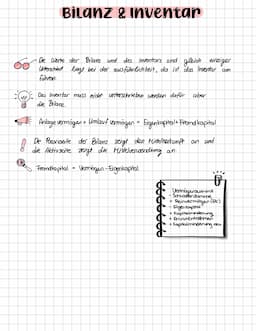 Bilanz & Inventar
Die Werte der Bilanz und des Inventars sind gleich einziger
Unterschied liegt bei der ausführlichkeit, da ist das Inventar am
führen
Das Inventar muss nicht unterschrieben werden dafür aber
die Bilanz
Anlagevermögen + Umlaufvermögen = Eigenkapital + Fremdkapital
Die Passivseite der Bilanz zeigt das Mittelherkunft an und
die Aktivseite zeigt die Mittelverwendung an
Fremdkapital = Vermögen - Eigenkapital
- Schulden
= Reinvermögen (EK)
- Eigenkapital
+ Kapitalminderung